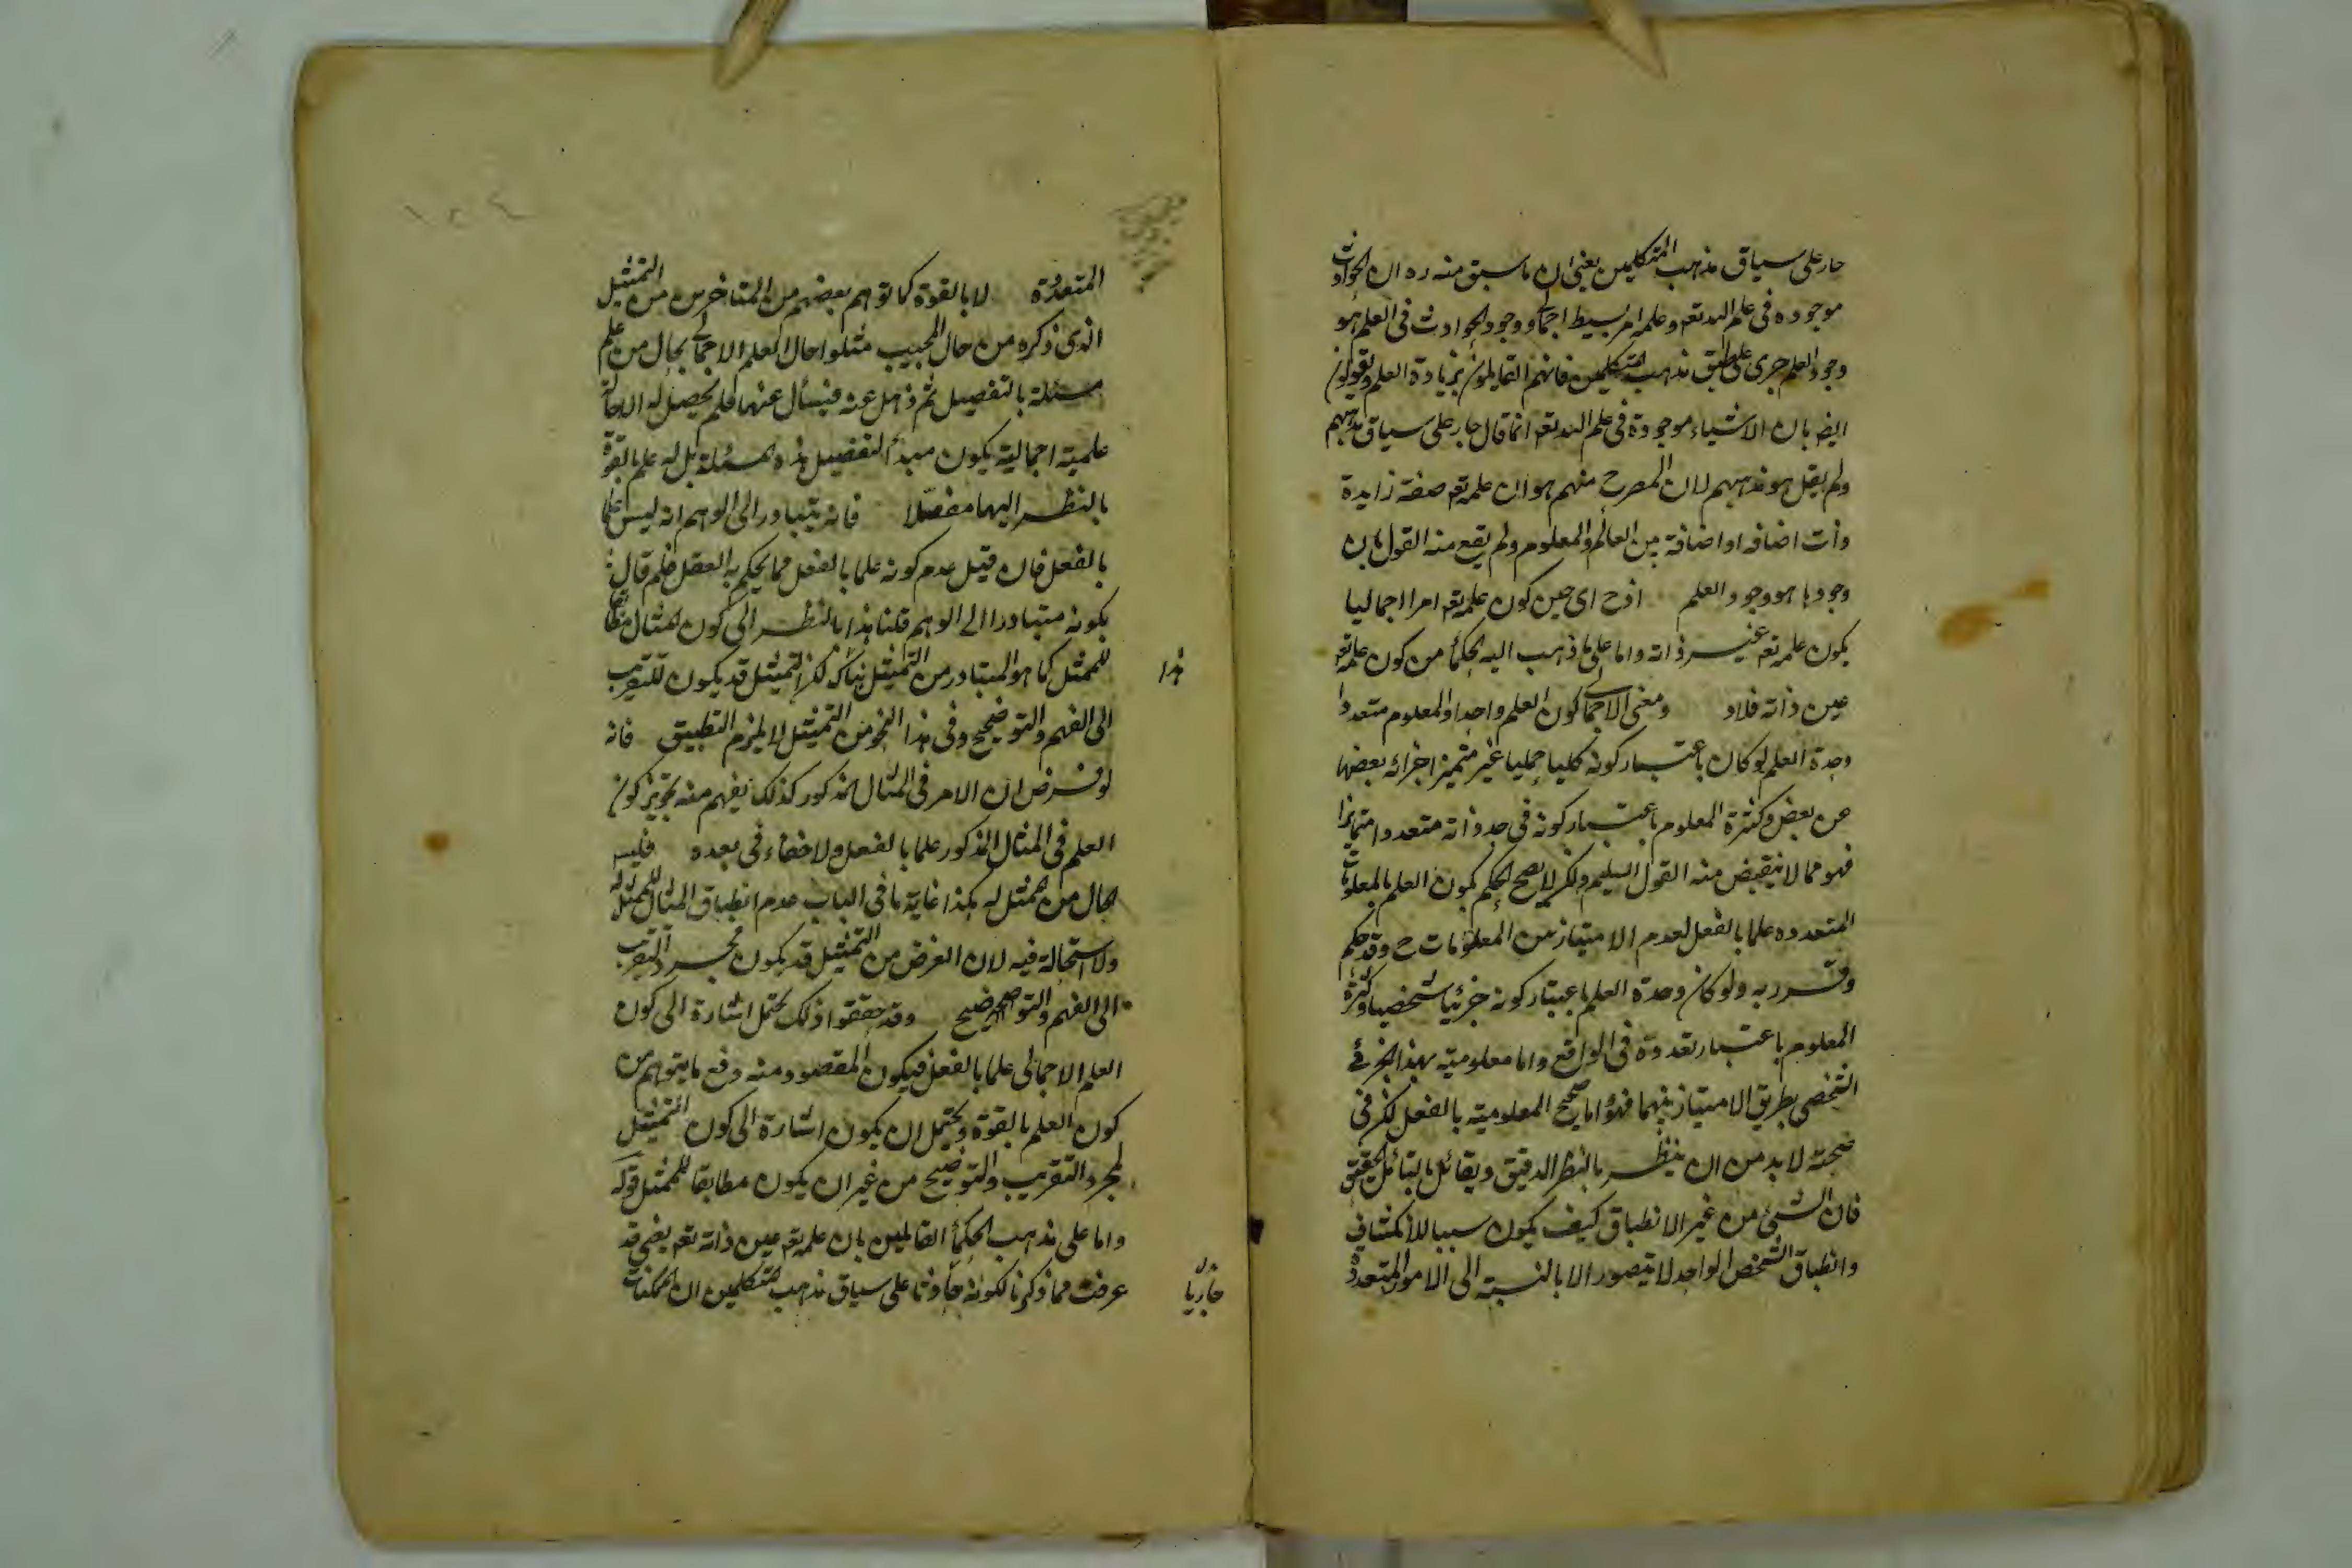 جار على سياق مذهب المتكلمين يعنى ان ما سبق منه ره ان الحوادث
موجوده فى علم الله تعه وعلمه امر بسيط اجمالى ووجود الحوادث فى العلم هو
وجود العلم جرى على طبق مذهب المتكلمين فانهم القايلون بزيادة العلم ويقولون
ايضا بان الاشياء موجودة فى علم الله تعه انما قال جار على سياق مذهبهم
ولم يقل هو مذهبهم لان المصرح منهم هو ان علمه تعه صفة زايدة
ذات اضافه او اضافة بين العالم والمعلوم ولم يقع منه القول بان
وجودها هو وجود العلم اذ ح اى حين كون علمه تعه امرا اجماليا
يكون علمه تعه غير ذاته واما على ما ذهب اليه الحكماء من كون علمه تعه
عين ذاته فلا ومعنى الاجمالى كون العلم واحدا والمعلوم متعددا
وحدة العلم لو كان باعتبار كونه كليا جمليا غير متميز اجزائه بعضها
عن بعض وكثرة المعلوم باعتبار كونه فى حد ذاته متعددا متمايزا
فهو مما لا ينقبض منه القول السليم ولكن لا يصح الحكم بكون العلم بالمعلومات
المتعدده علما بالفعل لعدم الامتياز بين المعلومات ح وقد حكم
وقرر به ولو كان وحدة العلم باعتبار كونه جزئيا شخصيا وكثرة
المعلوم باعتبار تعدده فى الواقع واما معلوميته بهذا الجزئى
الشخصى بطريق الامتياز بينهما فهو اما يصحح المعلوميته بالفعل لكن فى
صحته لا بد من ان ينظر بالنظر الدقيق ويقائل بالتأئل الحقيق
فان الشىء من غير الانطباق كيف يكون سببا لانكشاف
وانطباق الشخص الواحد لا يتصور الا بالنسبة الى الامور المتعددة
المتعددة لا بالقوة كما توهم بعضهم من المتاخرين من التمثيل
الذى ذكره من حال المجيب مثلوا حال العلم الاجمالى بحال من علم
مسئلة بالتفصيل ثم ذهل عنه فيسأل عنها فلم يحصل له الا حالة
علمية اجمالية يكون مبدأ لتفصيل هذه المسئلة بل له علم بالقوة
بالنظر اليها مفصلا فانه يتبادر الى الوهم انه ليس علما
بالفعل فان قيل عدم كونه علما بالفعل مما يحكم به العقل فلم قال
بكونه متبادرا الى الوهم قلنا هذا بالنظر الى كون المثال مطابقا
للممثل كما هو المتبادر من التمثيل هناك لكن التمثيل قد يكون للتقريب
الى الفهم والتوضيح وفى هذا النحو من التمثيل لا يلزم التطبيق فانه
هذا
لو فرض ان الامر فى المثال المذكور كذلك يفهم منه تجويز كون
العلم فى المثال المذكور علما بالفعل ولا خفاء فى بعده فليس
بحال من الممثل له هكذا غاية ما فى الباب عدم انطباق المثال للممثل له
ولا استحالة فيه لان الغرض من التمثيل قد يكون مجرد التقريب
الى الفهم والتوضيح وقد حققوا ذلك يحتمل اشارة الى كون
العلم الاجمالى علما بالفعل فيكون المقصود منه دفع ما يتوهم من
كون العلم بالقوة ويحتمل ان يكون اشارة الى كون التمثيل
لمجرد التقريب والتوضيح من غير ان يكون مطابقا للممثل قوله
واما على مذهب الحكماء القايلين بان علمه تعه عين ذاته تعه يعنى قد
عرفت مما ذكرنا لكونه على سياق مذهب المتكلمين ان الممكنات
جاريا